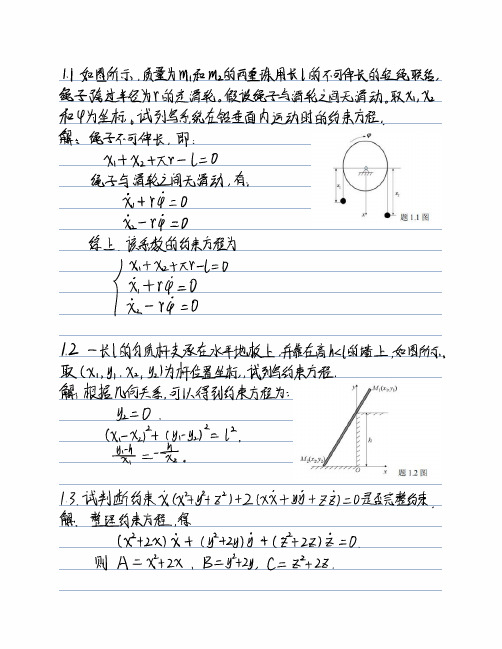 1.1 如图所示,质量为m₁和m₂的两重物用长l的不可伸长的轻绳联结,
绳子跨过半径为r的定滑轮。假设绳子与滑轮之间无滑动。取x₁,x₂
和φ为坐标。试列写系统在铅垂面内运动时的约束方程.
解:绳子不可伸长,即:
x₁+x₂+πr-l=0
绳子与滑轮之间无滑动,有,
ẋ₁+rφ̇=0
ẋ₂-rφ̇=0
综上,该系数的约束方程为
x₁+x₂+πr-l=0
ẋ₁+rφ̇=0
ẋ₂-rφ̇=0
φ
x₁
x₂
x
题 1.1 图
1.2 一长l的匀质杆支承在水平地板上,并靠在高h<l的墙上,如图所示.
取(x₁,y₁,x₂,y₂)为杆位置坐标,试列写约束方程.
解:根据几何关系,可以得到约束方程为:
y₂=0.
(x₁-x₂)²+(y₁-y₂)²=l².
(y₁-h)/x₁=-h/x₂.
y
M₁(x₁,y₁)
h
M₂(x₂,y₂)
O
x
题 1.2 图
1.3.试判断约束 ẋ(x²+y²+z²)+2(xẋ+yẏ+zż)=0是否完整约束.
解.整理约束方程,得
(x²+2x)ẋ+(y²+2y)ẏ+(z²+2z)ż=0.
则 A=x²+2x,B=y²+2y,C=z²+2z.